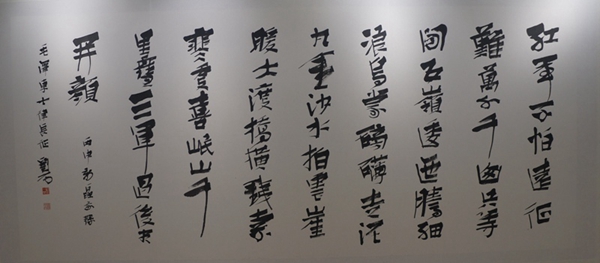 紅軍不怕遠征
難萬水千山只等
閒五嶺逶迤騰細
浪烏蒙磅礴走泥
丸金沙水拍雲崖
暖大渡橋橫鐵索
寒更喜岷山千
里雪三軍過後尽
开顏
丙申
毛澤東七律長征 劉